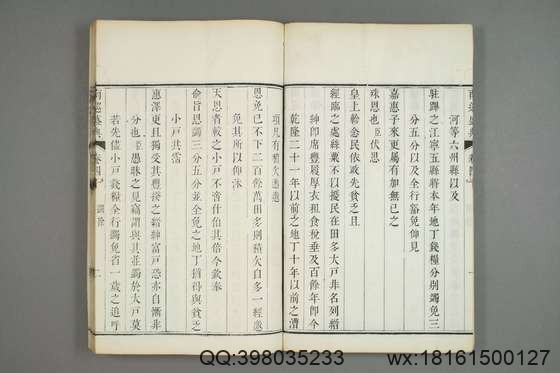 河等六州縣以及
駐蹕之江寧五縣將本年地丁錢糧分別蠲免三
分五分以及全行豁免仰見
嘉惠子來更屬有加無已之
殊恩也臣伏思
皇上軫念民依政先貧乏
經臨之處絲粟不以擾民在田多大戶非名列縉
紳即席豐履厚衣租食稅埀及百餘年即今
乾隆二十一年以前之地丁十年以前之漕
項凡有積欠悉邀
恩免已不下二百餘萬田多則積欠自多一經邀
免其所以仰沐
天恩者較之小戶不啻什伯其倍今欽奉
俞旨恩蠲三分五分並全免之地丁猶得與貧乏
小戶共霑
惠澤更且獨受其豐揆之紳富戶恐亦自慚非
分也臣愚昧之見竊謂與其並蠲於大戶莫
若先儘小戶錢糧全行蠲免省一歲之追呼
南巡盛典
卷四
蠲除
二
QQ:398035233
wx:18161500127